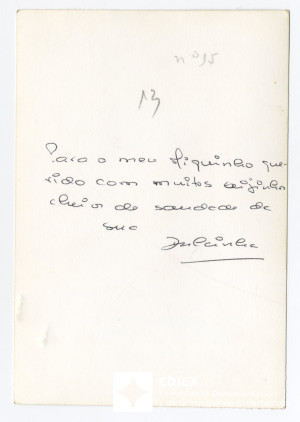 nº 95
13
Para o meu Fiquinho que-
rido com muitos beijinhos
cheios de saudade da
sua